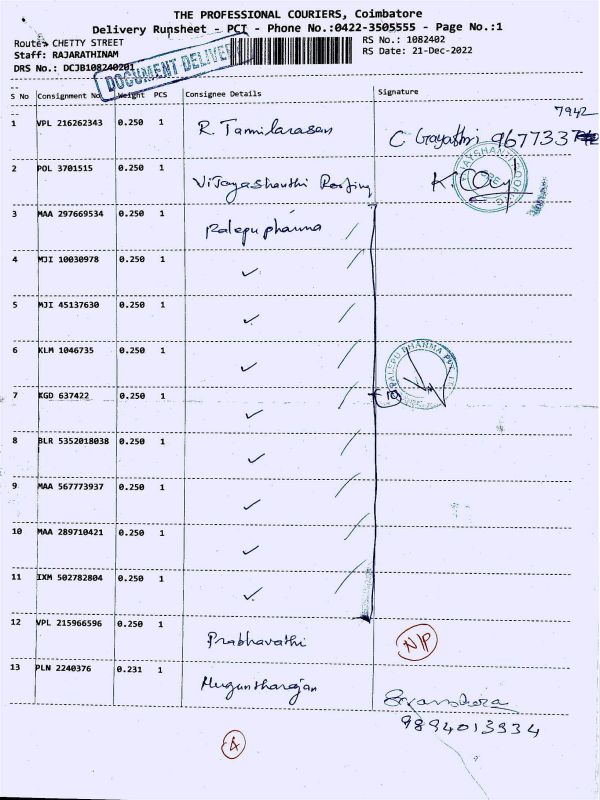 THE PROFESSIONAL COURIERS, Coimbatore
Delivery Runsheet - PCI - Phone No.:0422-3505555 - Page No.:1
Route: CHETTY STREET
RS No.: 1082402
Staff: RAJARATHINAM
RS Date: 21-Dec-2022
DRS No.: DCJB108240201
DOCUMENT DELIVERY
S No Consignment No Weight PCS Consignee Details Signature
7942
1 VPL 216262343 0.250 1 R. Tamilarasan C Gayathri 9677337
2 POL 3701515 0.250 1 Vijayashanthi Roofing
3 MAA 297669534 0.250 1 Palepu pharma
4 MJI 10030978 0.250 1 ✓
5 MJI 45137630 0.250 1 ✓
6 KLM 1046735 0.250 1 ✓
PALEPU PHARMA PVT. LTD
7 KGD 637422 0.250 1 ✓
8 BLR 5352018038 0.250 1 ✓
9 MAA 567773937 0.250 1 ✓
10 MAA 289710421 0.250 1 ✓
11 IXM 502782804 0.250 1 ✓
12 VPL 215966596 0.250 1 Prabhavathi N/P
13 PLN 2240376 0.231 1 Muguntharajan
9894013934
A